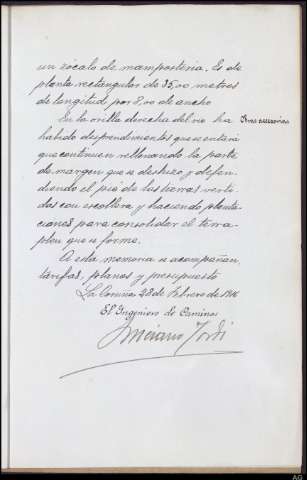 un zócalo de mampostería. Es de
planta rectangular de 35,00 metros
de longitud por 8,00 de ancho
En la orilla derecha del rio ha
Obras accesorias
habido desprendimientos que se evitará
que continuen rellenando la parte
de margen que se deshizo y defen-
diendo el pié de las tierras verti-
das con escollera y haciendo planta-
ciones para consolidar el terra-
plen que se forme.
A esta memoria se acompañan
tarifas, planos y presupuesto
La Coruña 28 de Febrero de
El Ingeniero de Caminos
Luciano Yordi